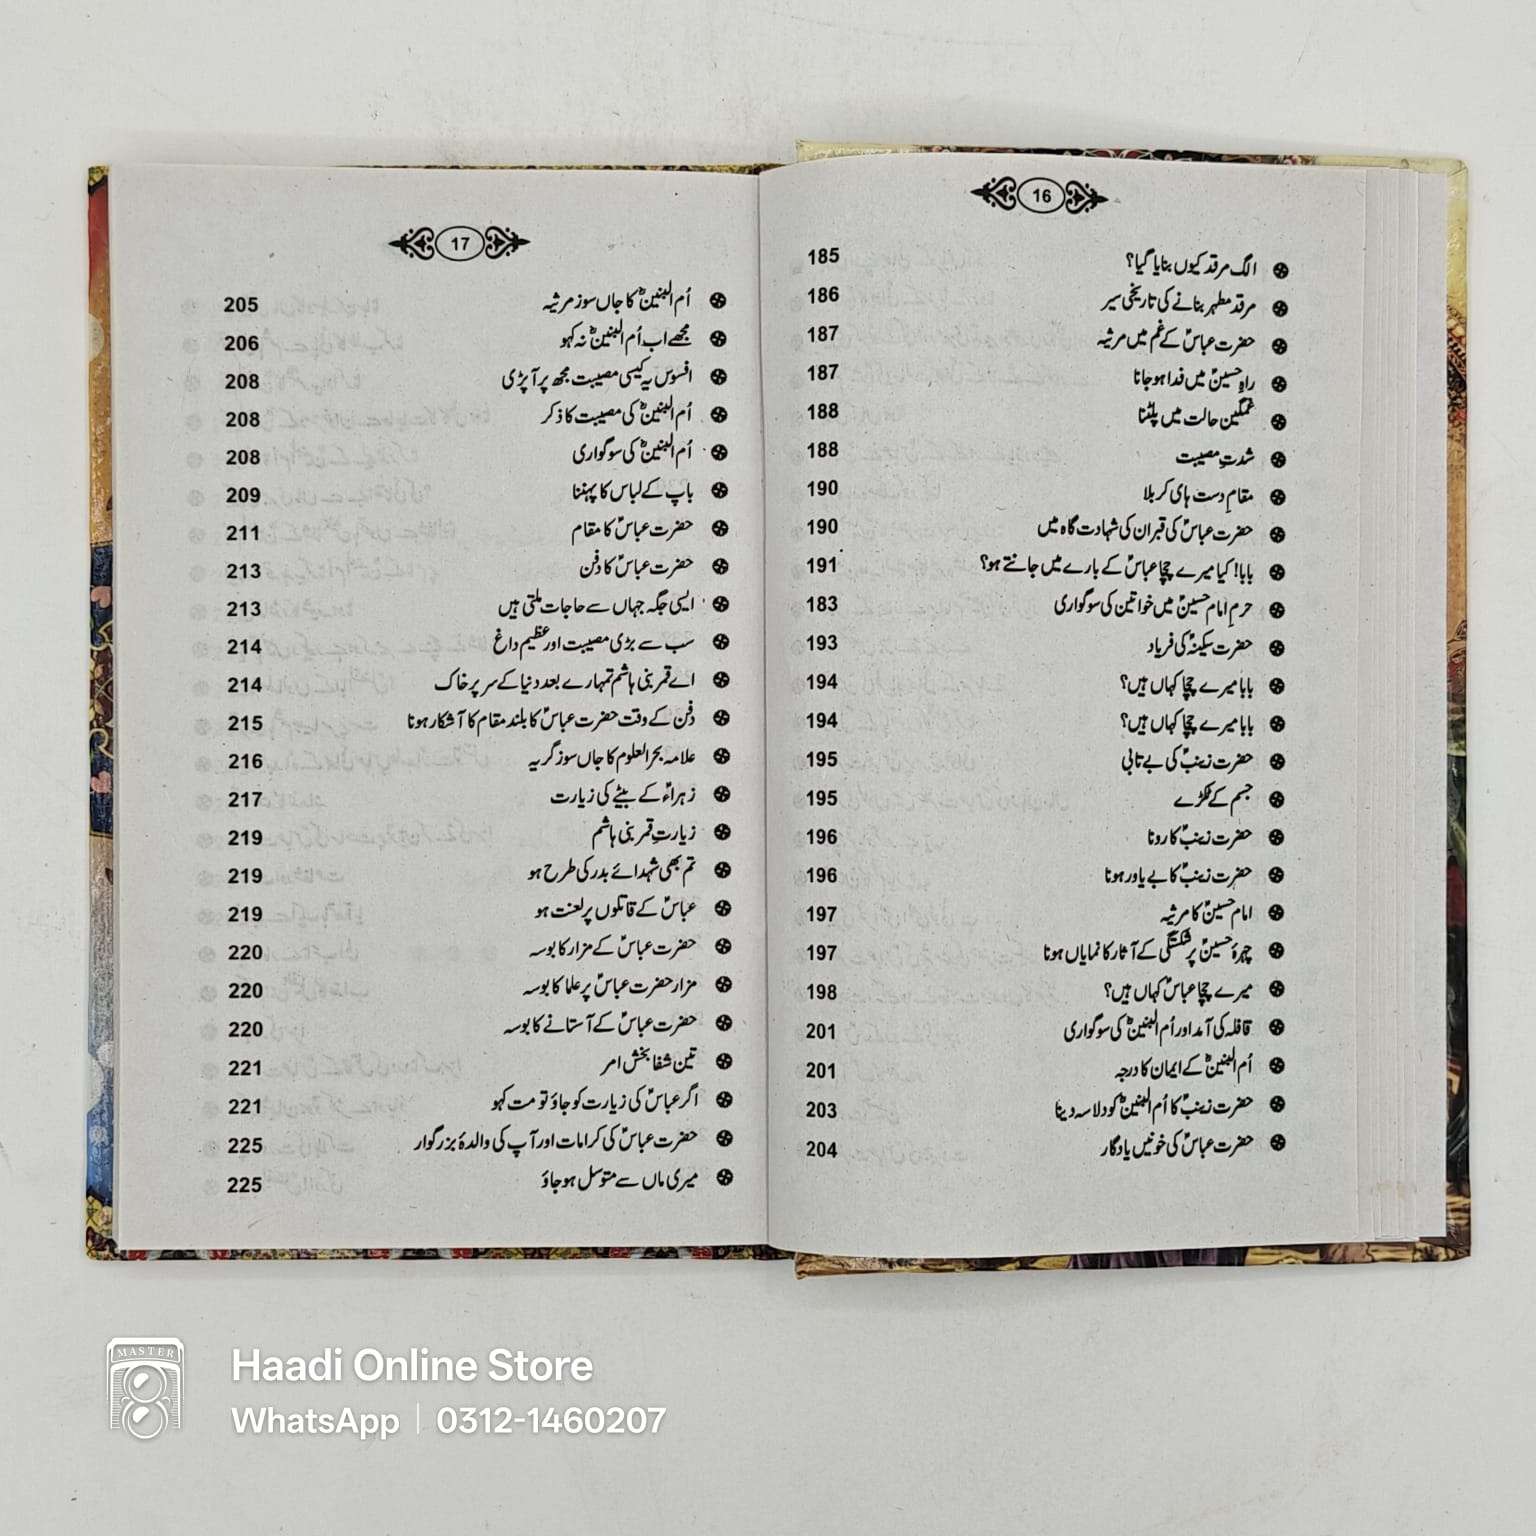 16
الگ مرقد کیوں بنایا گیا؟ 185
مرقد مطہر بنانے کی تاریخی سیر 186
حضرت عباسؑ کے غم میں مرثیہ 187
راہِ حسینؑ میں فدا ہو جانا 187
غمگین حالت میں پلٹنا 188
شدتِ مصیبت 188
مقامِ دست ہای کربلا 190
حضرت عباسؑ کی قبر ان کی شہادت گاہ میں 190
بابا! کیا میرے چچا عباسؑ کے بارے میں جانتے ہو؟ 191
حرمِ امام حسینؑ میں خواتین کی سوگواری 183
حضرت سکینہؑ کی فریاد 193
بابا میرے چچا کہاں ہیں؟ 194
بابا میرے چچا کہاں ہیں؟ 194
حضرت زینبؑ کی بے تابی 195
جسم کے ٹکڑے 195
حضرت زینبؑ کا رونا 196
حضرت زینبؑ کا بے یاور ہونا 196
امام حسینؑ کا مرثیہ 197
چہرۂ حسینؑ پر شکستگی کے آثار کا نمایاں ہونا 197
میرے چچا عباسؑ کہاں ہیں؟ 198
قافلہ کی آمد اور اُم البنینؑ کی سوگواری 201
اُم البنینؑ کے ایمان کا درجہ 201
حضرت زینبؑ کا اُم البنینؑ کو دلاسہ دینا 203
حضرت عباسؑ کی خونیں یادگار 204
17
اُم البنینؑ کا جاں سوز مرثیہ 205
مجھے اب اُم البنینؑ نہ کہو 206
افسوس یہ کیسی مصیبت مجھ پر آ پڑی 208
اُم البنینؑ کی مصیبت کا ذکر 208
اُم البنینؑ کی سوگواری 208
باپ کے لباس کا پہننا 209
حضرت عباسؑ کا مقام 211
حضرت عباسؑ کا دفن 213
ایسی جگہ جہاں سے حاجات ملتی ہیں 213
سب سے بڑی مصیبت اور عظیم داغ 214
اے قمر بنی ہاشم تمہارے بعد دنیا کے سر پر خاک 214
دفن کے وقت حضرت عباسؑ کا بلند مقام کا آشکار ہونا 215
علامہ بحر العلوم کا جاں سوز گریہ 216
زہراءؑ کے بیٹے کی زیارت 217
زیارتِ قمر بنی ہاشم 219
تم بھی شہدائے بدر کی طرح ہو 219
عباسؑ کے قاتلوں پر لعنت ہو 219
حضرت عباسؑ کے مزار کا بوسہ 220
مزار حضرت عباسؑ پر علما کا بوسہ 220
حضرت عباسؑ کے آستانے کا بوسہ 220
تین شفا بخش امر 221
اگر عباسؑ کی زیارت کو جاؤ تو مت کہو 221
حضرت عباسؑ کی کرامات اور آپ کی والدۂ بزرگوار 225
میری ماں سے متوسل ہو جاؤ 225
MASTER
Haadi Online Store
WhatsApp | 0312-1460207